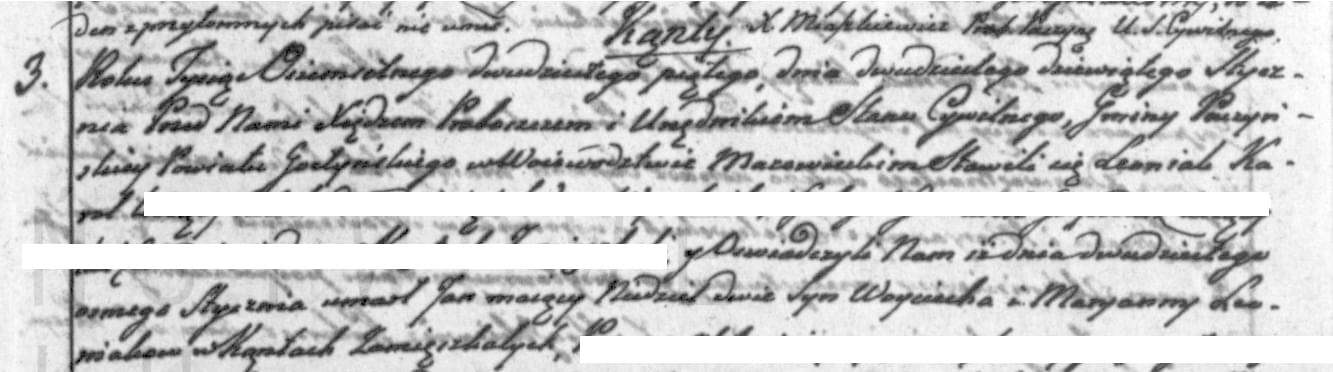 den z przytomnych pisać nie umié. Kąnty. X Miaskiewicz Prob. U. S. Cywilnego.
3. Roku Tysiąc Osiemsetnego dwudziestego piątego, dnia dwudziestego dziewiątego Stycz-
nia Przed Nami Xiędzem Proboszczem i Urzędnikiem Stanu Cywilnego, Gminy
skiey Powiatu Gostynskiego w Woiewodztwie Mazowieckim Stawili się Leoniak Ka-
rol
y Oswiadczyli Nam iż dnia dwudziestego
osmego Stycznia umarł Jan maiący Niedziel dwie Syn Woyciecha i Maryanny Leo-
niakow w Kąntach Zamięszkałych,